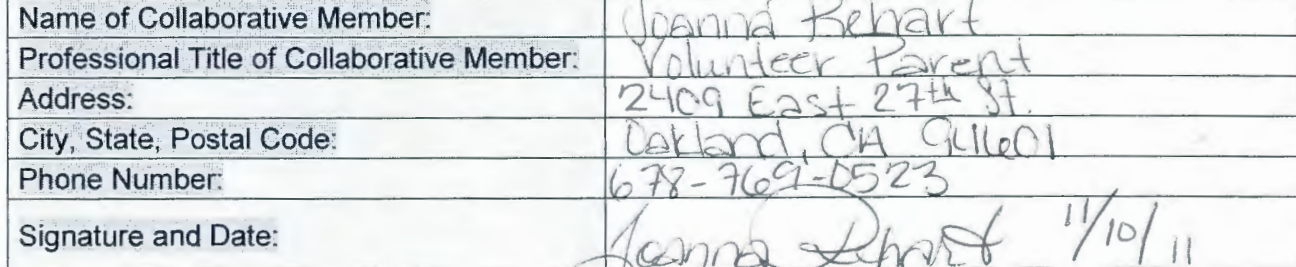 Name of Collaborative Member: Joanna Rehart
Professional Title of Collaborative Member: Volunteer Parent
Address: 2409 East 27th St.
City, State, Postal Code: Oakland, CA 94601
Phone Number: 678-769-0523
Signature and Date: Joanna Rehart 11/10/11